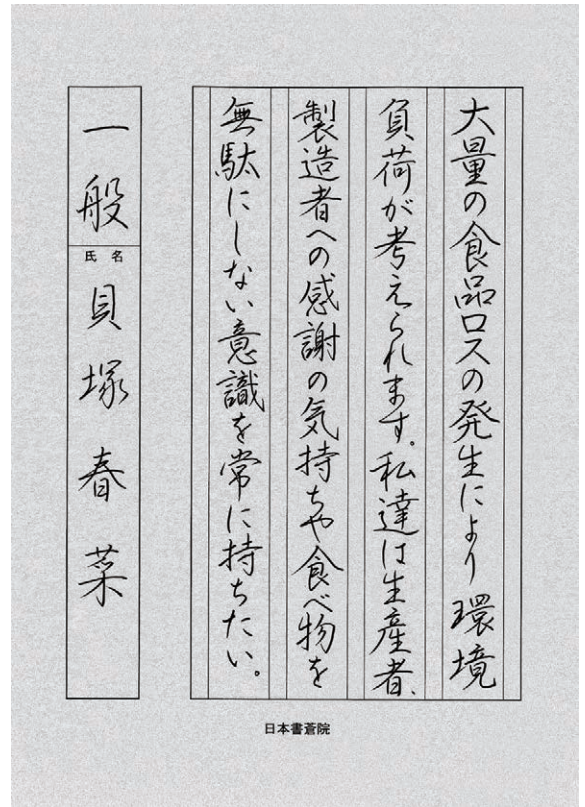 大量の食品ロスの発生により環境
負荷が考えられます。私達は生産者、
製造者への感謝の気持ちや食べ物を
無駄にしない意識を常に持ちたい。
一般
氏名
貝塚春菜
日本書蒼院